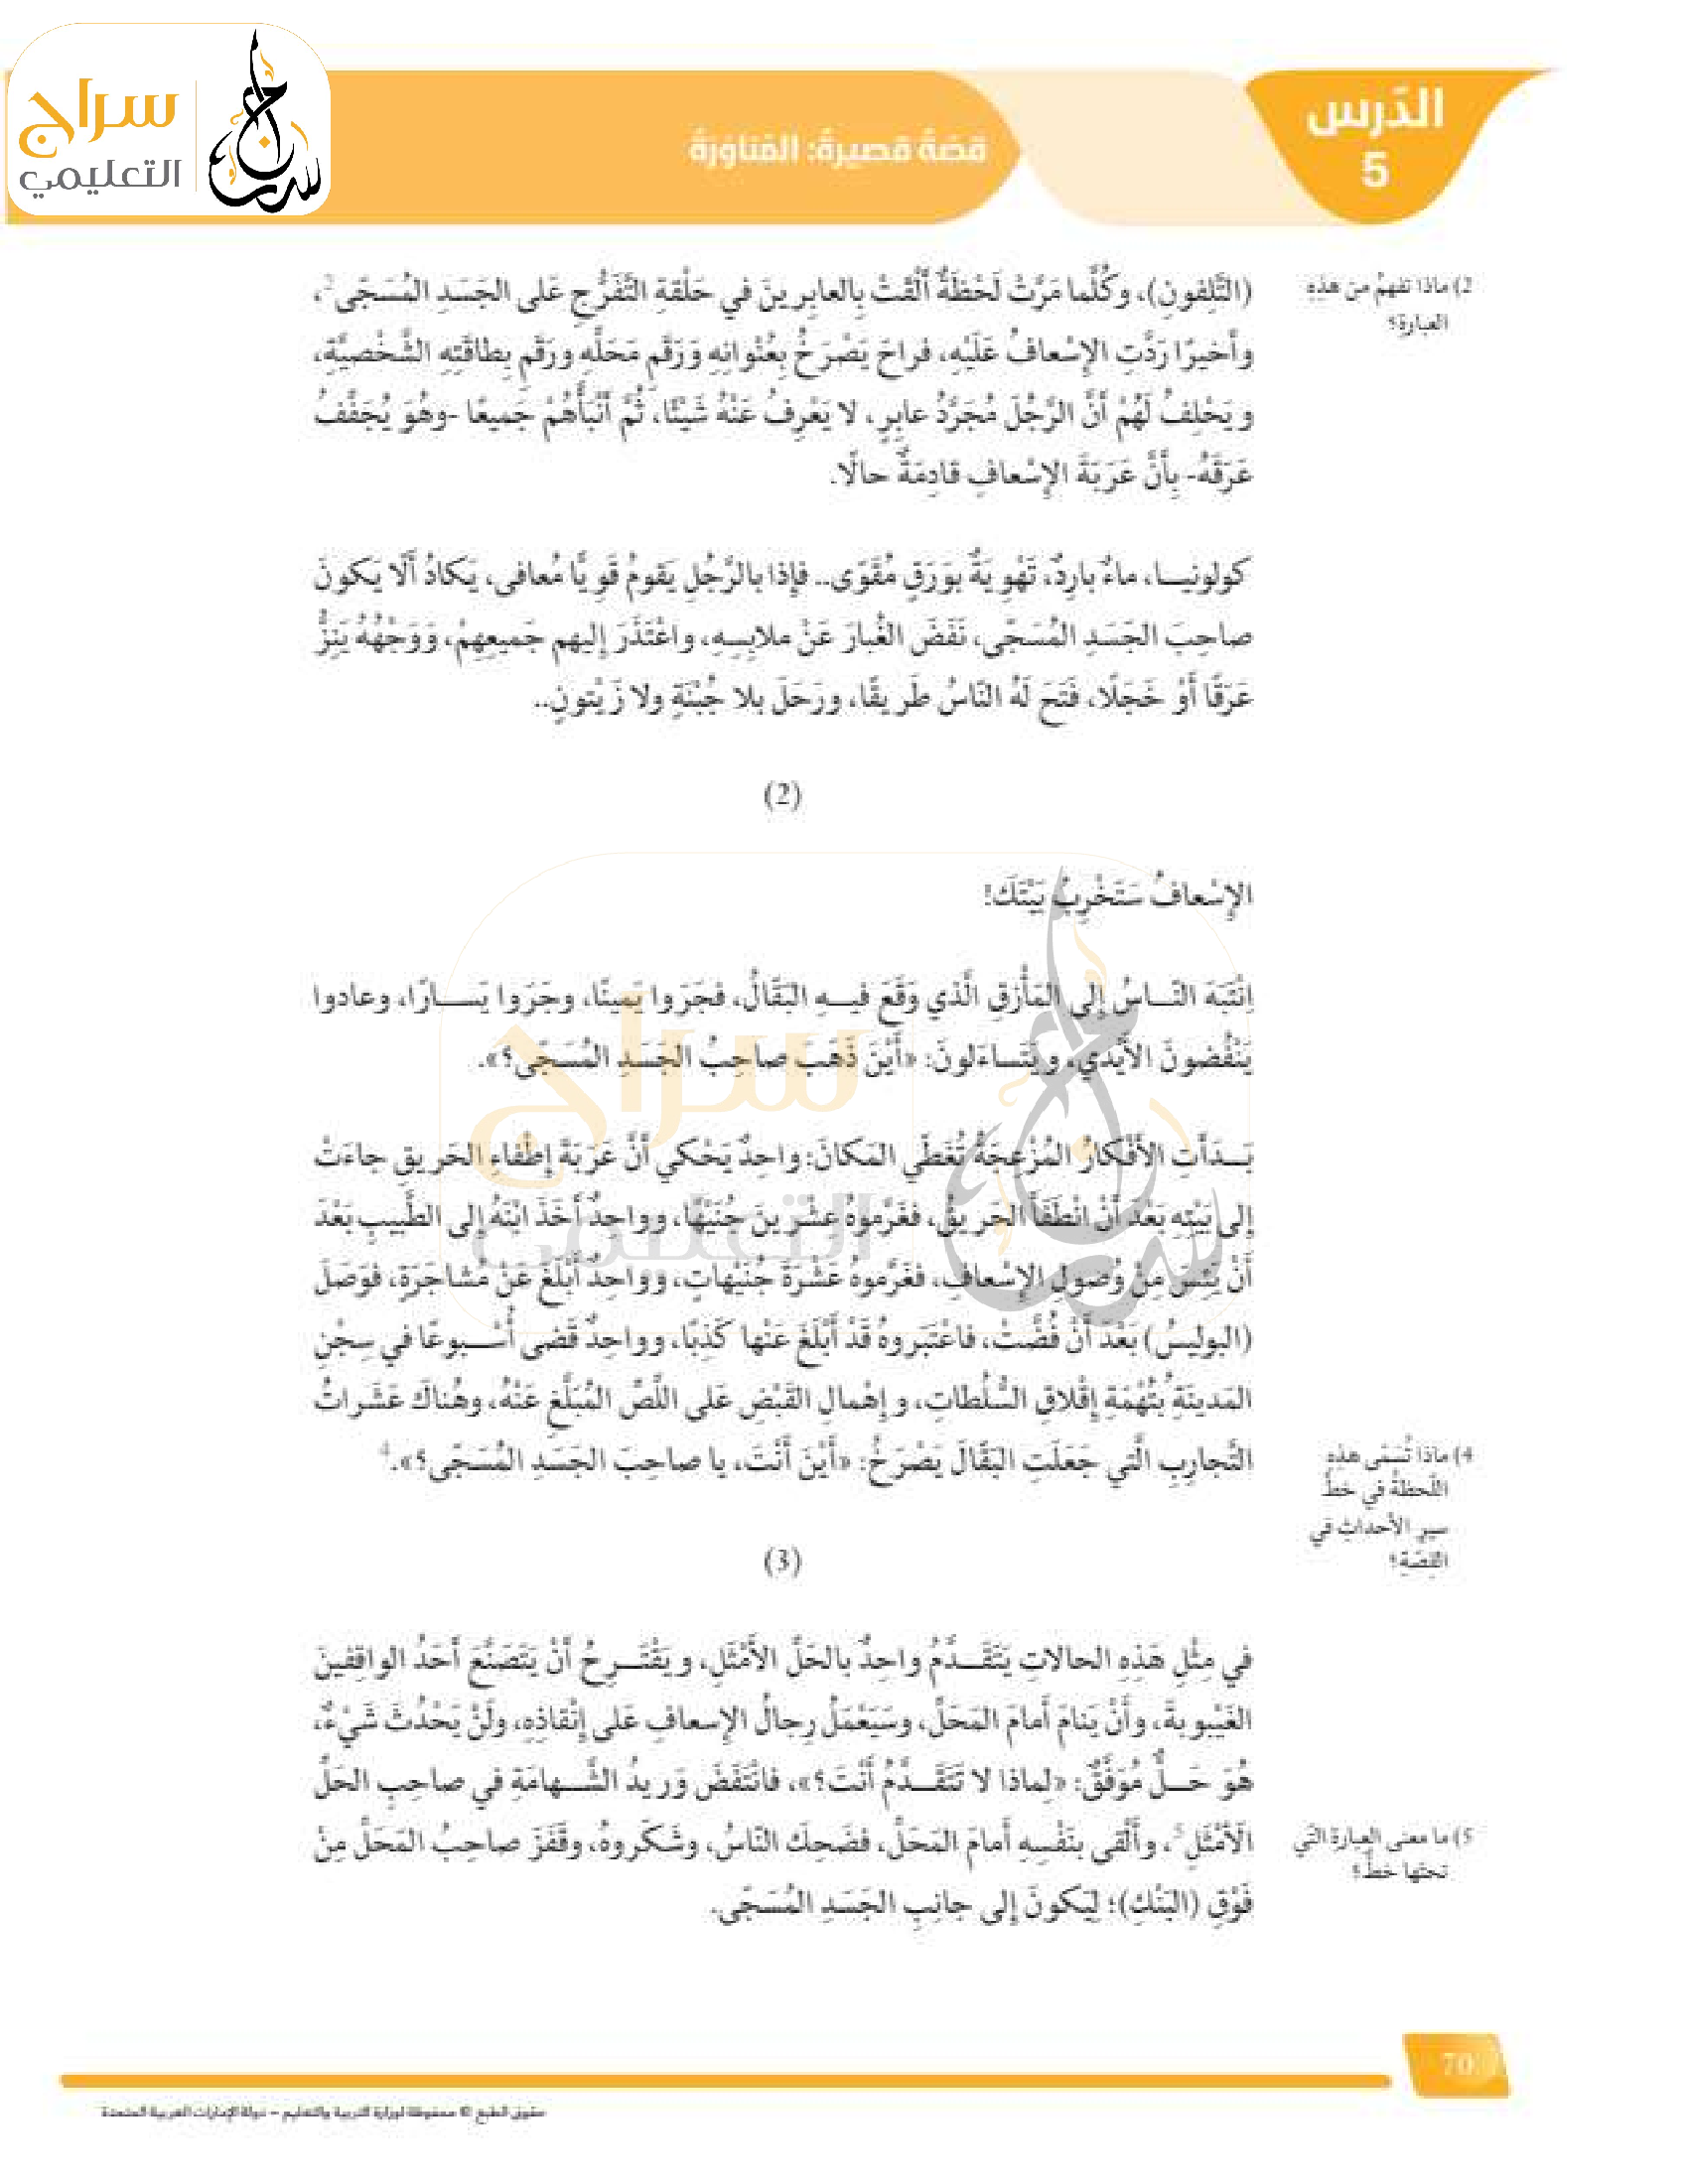 سراج
التعليمي
الدّرس
5
قصّةٌ قصيرةٌ: المُناوَرةُ
(التِّلِفونِ)، وكُلَّما مَرَّتْ لَحْظَةٌ أَلْقَتْ بِالعابِرينَ في حَلْقةِ التَّفَرُّجِ عَلى الجَسَدِ المُسَجّى2،
وأخيرًا رَدَّتِ الإسْعافُ عَلَيْهِ، فراحَ يَصْرَخُ بِعُنْوانِهِ وَرَقْمِ مَحَلِّهِ ورَقْمِ بِطاقَتِهِ الشَّخْصيَّةِ،
ويَحْلِفُ لَهُمْ أَنَّ الرَّجُلَ مُجَرَّدُ عابِرٍ، لا يَعْرِفُ عَنْهُ شَيْئًا، ثُمَّ أَنْبَأَهُمْ جَميعًا -وهُوَ يُجَفِّفُ
عَرَقَهُ- بِأَنَّ عَرَبَةَ الإسْعافِ قادِمَةٌ حالًا.
2) ماذا تفهمُ من هذِهِ
العبارة؟
كولونيـا، ماءٌ بارِدٌ، تَهْوِيَةٌ بِوَرَقٍ مُقَوّى.. فإذا بالرَّجُلِ يَقومُ قَوِيًّا مُعافى، يَكادُ أَلّا يَكونَ
صاحِبَ الجَسَدِ المُسَجّى، نَفَضَ الغُبارَ عَنْ ملابِسِهِ، واعْتَذَرَ إليهم جَميعِهِمْ، وَوَجْهُهُ يَنِزُّ
عَرَقًا أَوْ خَجَلًا، فَتَحَ لَهُ النّاسُ طَريقًا، ورَحَلَ بِلا جُبْنَةٍ ولا زَيْتونٍ..
(2)
الإسْعافُ سَتَخْرِبُ بَيْتَكَ!
اِنْتَبَهَ النّـاسُ إلى المَأْزِقِ الَّذي وَقَعَ فيـهِ البَقّالُ، فجَرَوا يَمينًا، وجَرَوا يَسـارًا، وعادوا
يَنْفُضونَ الأَيْدي، ويَتَساءَلونَ: «أَيْنَ ذَهَبَ صاحِبُ الجَسَدِ المُسَجّى؟».
بَـدَأَتِ الأَفْكارُ المُزْعِجَةُ تُغَطّي المَكانَ: واحِدٌ يَحْكي أَنَّ عَرَبَةَ إطْفاءِ الحَريقِ جاءَتْ
إلى بَيْتِهِ بَعْدَ أَنْ انْطَفَأَ الحَريقُ، فغَرَّموهُ عِشْرينَ جُنَيْهًا، وواحِدٌ أَخَذَ ابْنَهُ إلى الطَّبيبِ بَعْدَ
أَنْ يَئِسَ مِنْ وُصولِ الإسْعافِ، فغَرَّموهُ عَشْرَةَ جُنَيْهاتٍ، وواحِدٌ أَبْلَغَ عَنْ مُشاجَرَةٍ، فوَصَلَ
(البوليسُ) بَعْدَ أَنْ فُضَّتْ، فاعْتَبَروهُ قَدْ أَبْلَغَ عَنْها كَذِبًا، وواحِدٌ قَضى أُسْـبوعًا في سِجْنِ
المَدينَةِ بِتُهْمَةِ إقْلاقِ السُّلُطاتِ، وإهْمالِ القَبْضِ عَلى اللِّصِّ المُبَلَّغِ عَنْهُ، وهُناكَ عَشَراتُ
التَّجارِبِ الَّتي جَعَلَتِ البَقّالَ يَصْرَخُ: «أَيْنَ أَنْتَ، يا صاحِبَ الجَسَدِ المُسَجّى؟».4
4) ماذا تُسَمّى هذِهِ
اللّحظةُ في خطِّ
سيرِ الأحداثِ في
القِصّةِ؟
(3)
في مِثْلِ هَذِهِ الحالاتِ يَتَقَـدَّمُ واحِدٌ بالحَلِّ الأَمْثَلِ، ويَقْتَـرِحُ أَنْ يَتَصَنَّعَ أحَدُ الواقِفينَ
الغَيْبوبةَ، وأَنْ يَنامَ أَمامَ المَحَلِّ، وسَيَعْمَلُ رِجالُ الإسعافِ عَلى إنْقاذِهِ، ولَنْ يَحْدُثَ شَيْءٌ،
هُوَ حَـلٌّ مُوَفَّقٌ: «لِماذا لا تَتَقَـدَّمُ أَنْتَ؟»، فانْتَفَضَ وَريدُ الشَّـهامَةِ في صاحِبِ الحَلِّ
الأَمْثَلِ5، وأَلْقى بنَفْسِهِ أَمامَ المَحَلِّ، فضَحِكَ النّاسُ، وشَكَروهُ، وقَفَزَ صاحِبُ المَحَلِّ مِنْ
فَوْقِ (البَنْكِ)؛ لِيَكونَ إلى جانِبِ الجَسَدِ المُسَجّى.
5) ما معنى العِبارةِ الّتي
تحتَها خطٌّ؟
70
حقوق الطبع © محفوظة لوزارة التربية والتعليم – دولة الإمارات العربية المتحدة